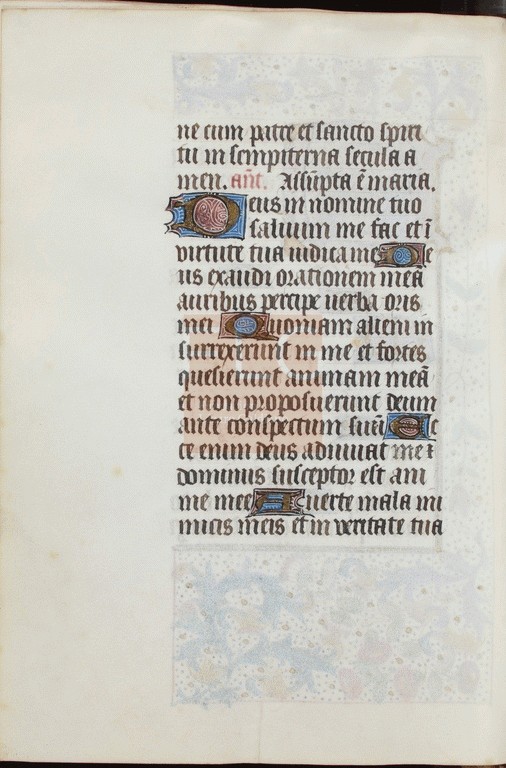 ne cum patre et sancto spiri
tu in sempiterna secula a
men. ant̄. Assūpta ē maria.
Deus in nomine tuo
saluum me fac et ī
virtute tua iudica me De
us exaudi orationem meā
auribus percipe uerba oris
mei Quoniam alieni in
surrexerunt in me et fortes
quesierunt animam meā
et non proposuerunt deum
ante conspectum suū Ec
ce enim deus adiuuat me ⁊
dominus susceptor est ani
me mee Auerte mala ini
micis meis et in veritate tua